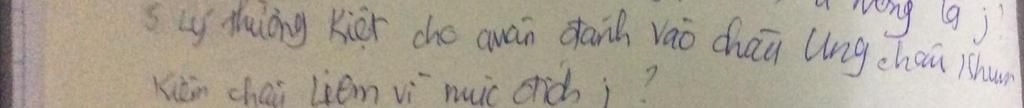 ượng là j?
5 Lý thường Kiệt cho quân đánh vào châu Ung châu Khum
Kiêm châu Liêm vì mục đích j ?